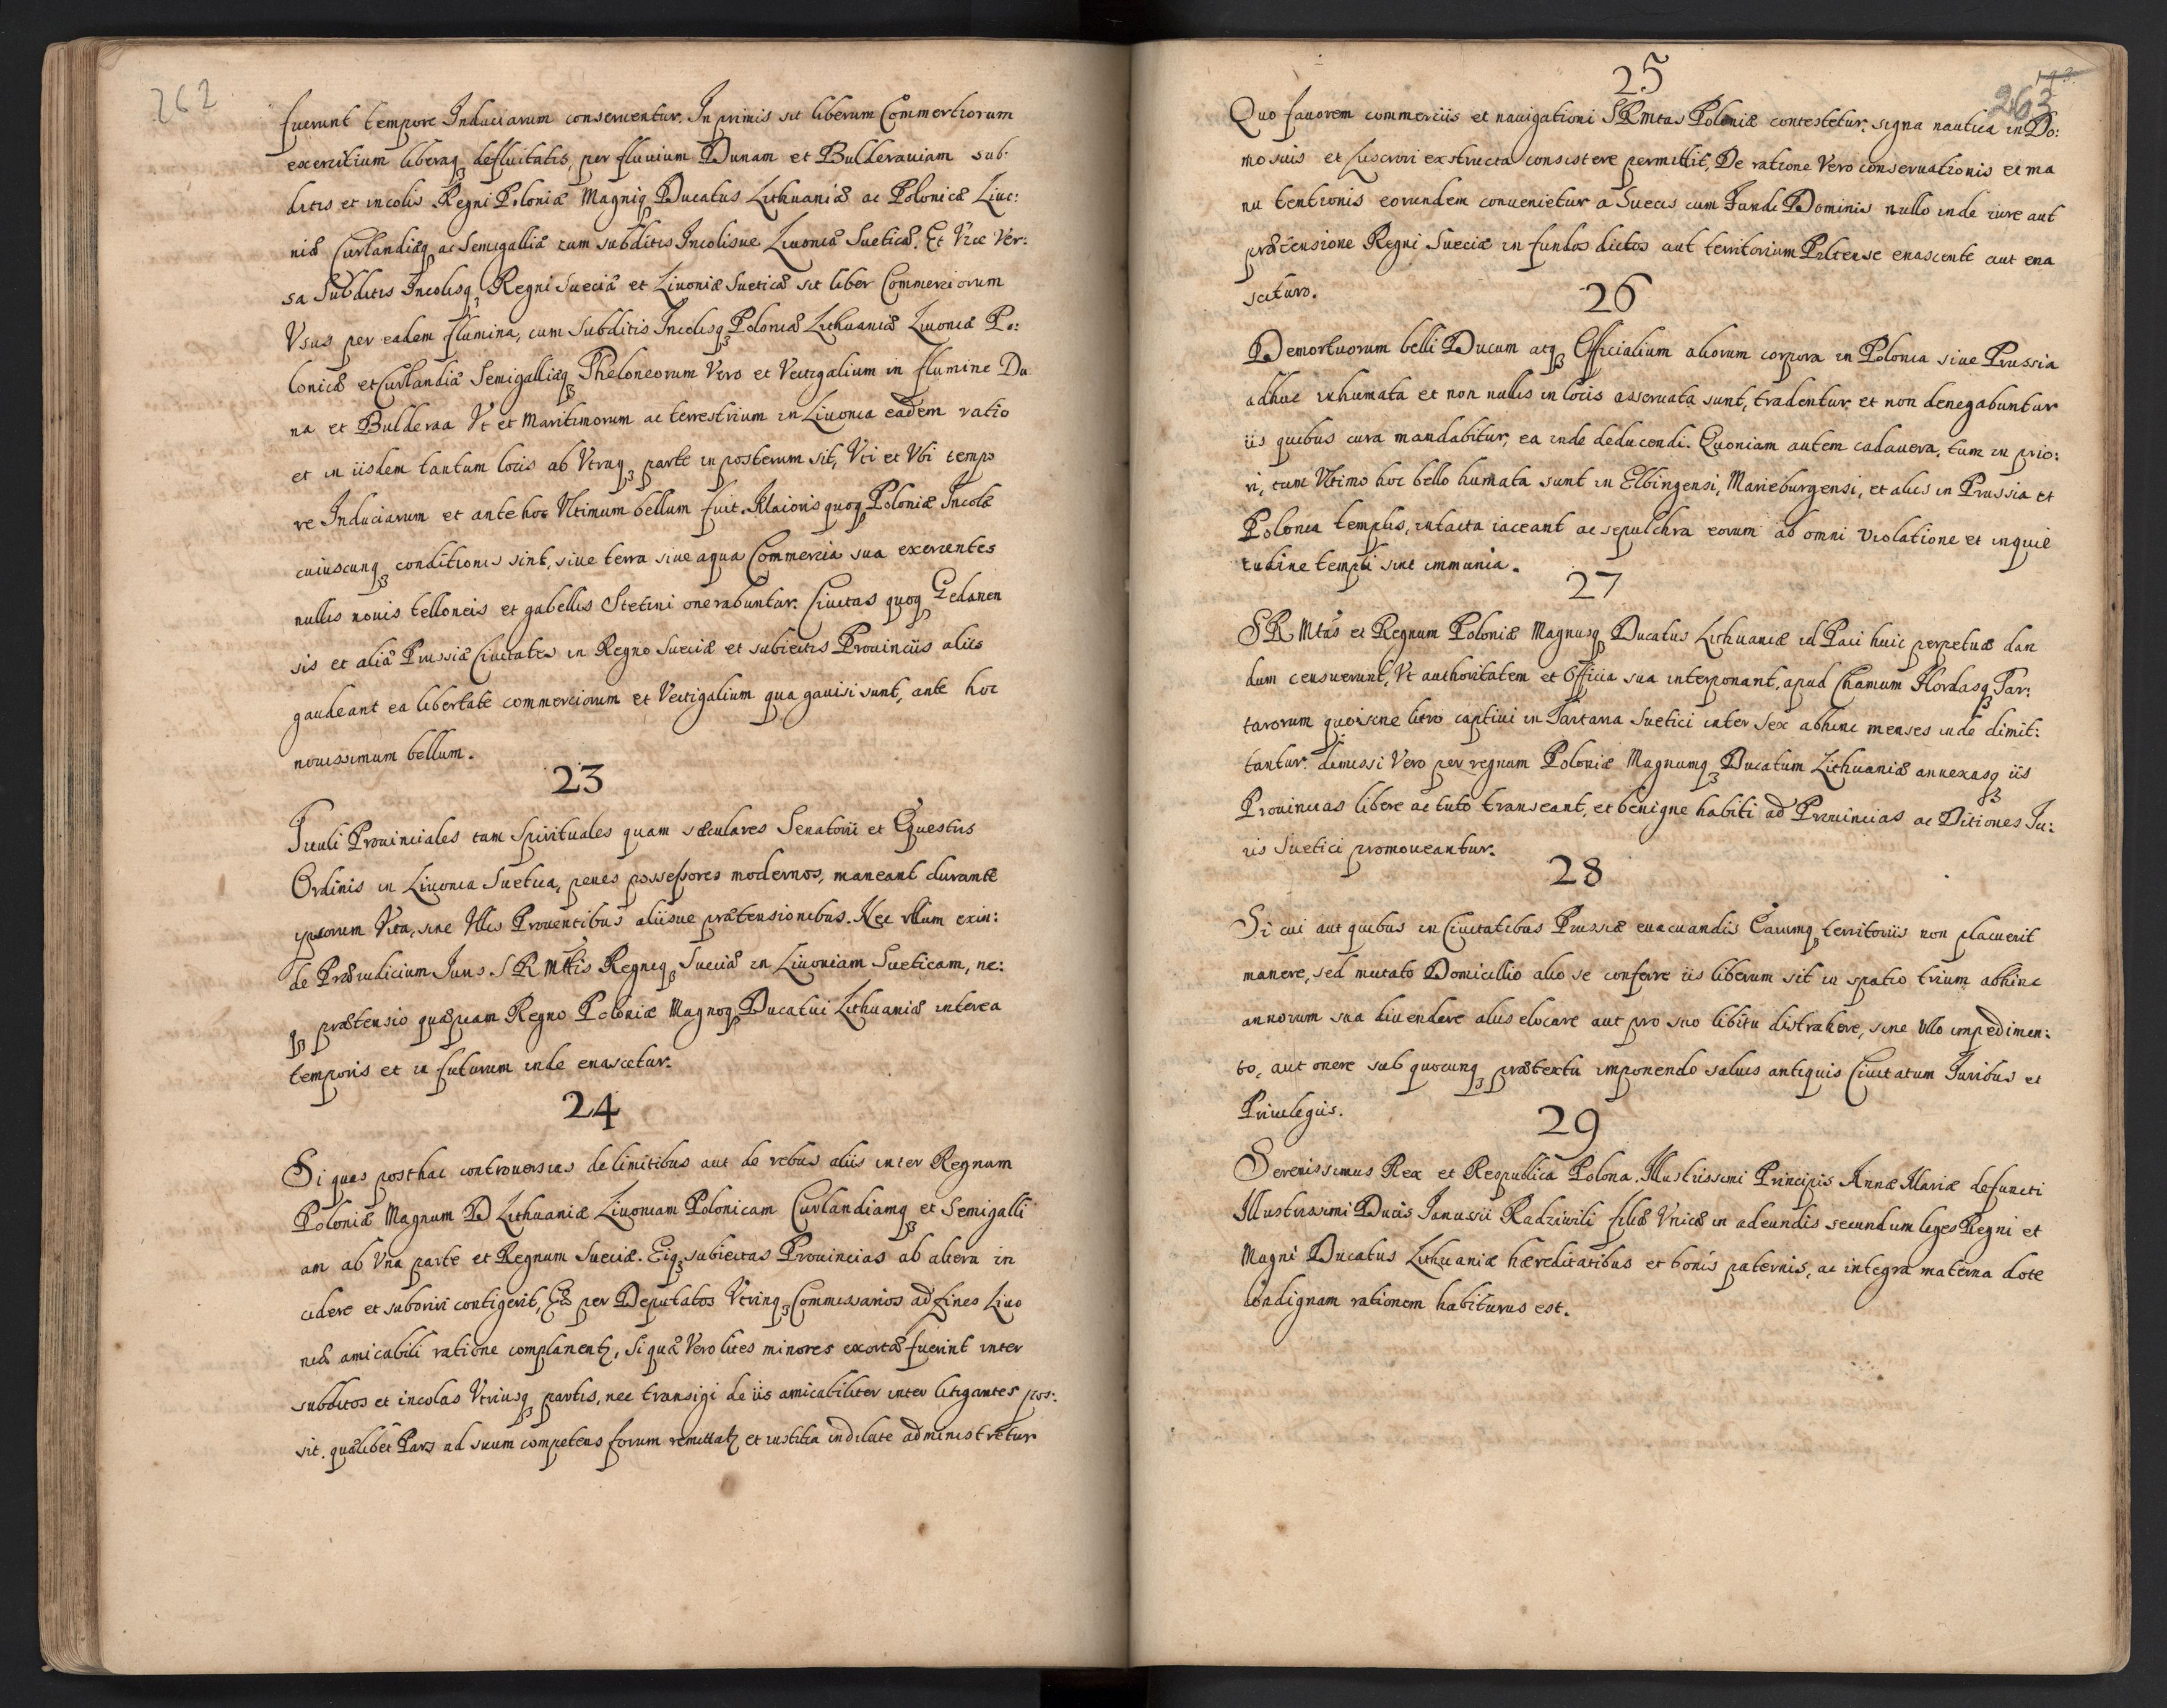 262
fuerunt tempore Induciarum conseruentur. In primis sit liberum Commertiorum
exercitium liberaq₃ defluitatis, per fluuium Dunam et Bulderauiam sub:
ditis et incolis Regni Poloniæ Magniq₃ Ducatus Lithuaniæ ac Polonicæ Liuo:
niæ Curlandiæq₃ ac Semigalliæ cum subditis Incolisue Liuoniæ Sueticæ. Et Vice Ver:
sa Subditis Incolisq₃ Regni Sueciæ et Liuoniæ Sueticæ sit liber Commerciorum
Vsus per eadem flumina, cum Subditis Incolisq₃ Poloniæ Lithuaniæ Liuoniæ Po:
lonicæ et Curlandiæ Semigalliæq₃ Theloneorum Vero et Vectigalium in flumine Du
na et Bulderaa Vt et Maritimorum ac terrestrium in Liuonia eadem ratio
et in iisdem tantum locis ab Vtraq₃ parte in posterum sit, Vti et Vbi tempo
re Induciarum et ante hoc Vltimum bellum fuit. Maioris quoq₃ Poloniæ Incolæ
cuiuscunq₃ conditionis sint, siue terra siue aqua Commercia sua exercentes
nullis nouis telloneis et gabellis Stetini onerabuntur. Ciuitas quoq₃ Gedanen
sis et aliæ Prussiæ Ciuitates in Regno Sueciæ et subiectis Prouinciis aliis
gaudeant ea libertate commerciorum et Vectigalium qua gauisi sunt, ante hoc
nouissimum bellum.
23
Tituli Prouinciales tam Spirituales quam sæculares Senatorii et Equestris
Ordinis in Liuonia Suetica, penes possessores modernos, maneant durante
ipsorum Vita, sine Vllis Prouentibus aliisue prætensionibus. Nec vllum exin:
de Præiudicium Juris S R Mttis Regniq₃ Sueciæ in Liuoniam Sueticam, ne:
q₃ prætensio quæpiam Regno Poloniæ Magnoq₃ Ducatui Lithuaniæ interea
temporis et in futurum inde enascetur.
24
Si quas posthac controuersias de limitibus aut de rebus aliis inter Regnum
Poloniæ Magnum D Lithuaniæ Liuoniam Polonicam Curlandiamq₃ et Semigalli
am ab Vna parte et Regnum Sueciæ. Eiq₃ subiectas Prouincias ab altera in
cidere et suboriri contigerit, Eæ per Deputatos Vtrinq₃ Commissarios ad fines Liuo
niæ amicabili ratione complanentz, Si quæ Vero lites minores exortæ fuerint inter
subditos et incolas Vtriusq₃ partis, nec transigi de iis amicabiliter inter litigantes pos:
sit. quælibet Pars ad suum competens forum remittatz et iustitia indilate administretur
263
25
Quo fauorem commerciis et nauigationi S R Mtas Poloniæ contestetur. signa nautica in Do:
mosuis et Luserort exstructa consistere permittit, De ratione Vero conseruationis et ma
nu tentionis eorundem conuenietur a Suecis cum Fundi Dominis nullo inde iure aut
prætensione Regni Sueciæ in fundos dictos aut territorium Piltense enascente aut ena
scituro.
26
Demortuorum belli Ducum atq₃ Officialium aliorum corpora in Polonia siue Prussia
adhuc inhumata et non nullis in locis asseruata sunt, tradentur, et non denegabuntur
iis quibus cura mandabitur, ea inde deducendi. Quoniam autem cadauera, tum in prio:
ri, tum Vltimo hoc bello humata sunt in Elbingensi, Marieburgensi, et aliis in Prussia et
Polonia templis, intacta iaceant ac sepulchra eorum ab omni violatione et inquie
tudine templi sint immunia.
27
S R Mtas et Regnum Poloniæ Magnusq₃ Ducatus Lithuaniæ id Paci huic perpetuæ dan
dum censuerunt, Vt authoritatem et Officia sua interponant, apud Chamum Hordasq₃ Tar:
tarorum quo sine litro captiui in Tartaria Suetici inter Sex abhinc menses inde dimit:
tantur. dimissi Vero per regnum Poloniæ Magnumq₃ Ducatum Lithuaniæ annexasq₃ iis
Prouincias libere ac tuto transeant, et benigne habiti ad Prouincias ac Ditiones Iu:
ris Suetici promoueantur.
28
Si cui aut quibus in Ciuitatibus Prussiæ euacuandis Earumq₃ territoriis non placuerit
manere, sed mutato Domicilio alio se conferre iis liberum sit in spatio trium abhinc
annorum sua diuendere aliis elocare aut pro suo libitu distrahere, sine Vllo impedimen:
to, aut onere sub quocunq₃ prætextu imponendo saluis antiquis Ciuitatum Iuribus et
Priuilegiis.
29
Serenissimus Rex et Respublica Polona. Illustrissimi Principis Annæ Mariæ defuncti
Illustrissimi Ducis Ianussii Radziuili filiæ Vnicæ in adeundis secundum leges Regni et
Magni Ducatus Lithuaniæ hæreditatibus et bonis paternis, ac integra materna dote
condignam rationem habiturus est.